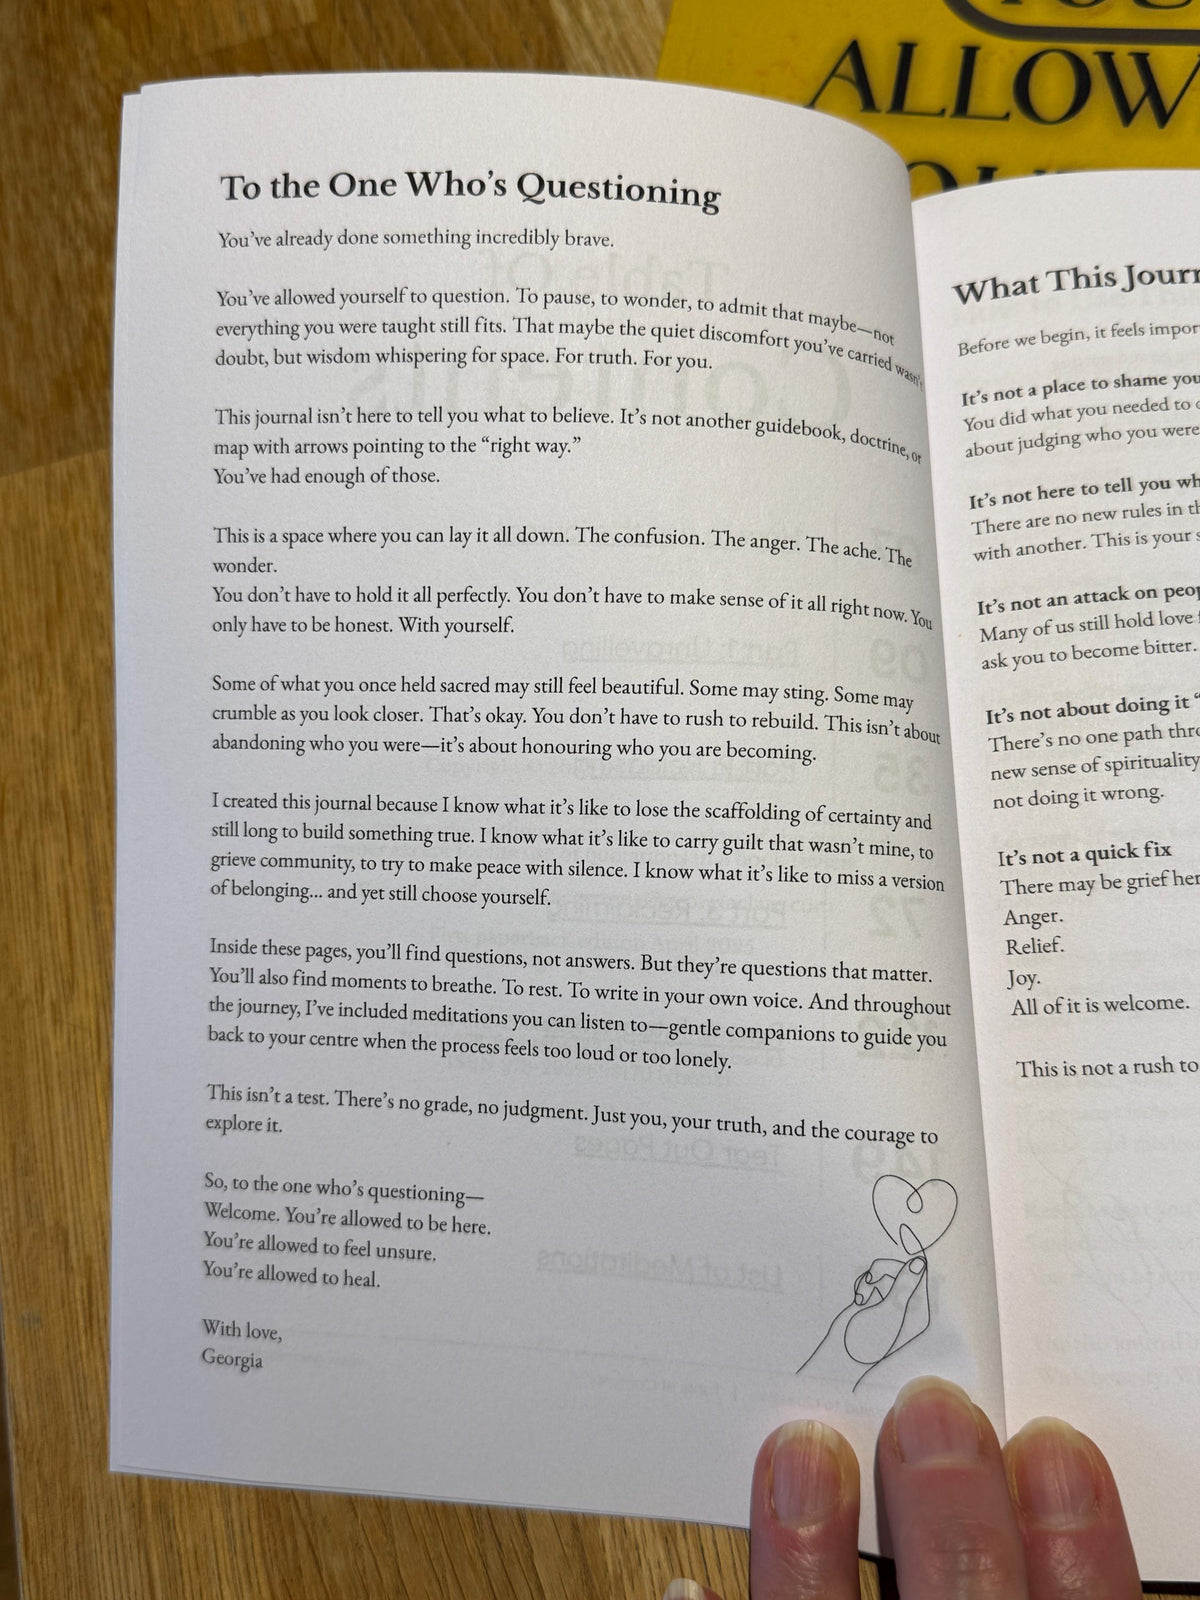 ALLOW
To the One Who's Questioning
You've already done something incredibly brave.
You've allowed yourself to question. To pause, to wonder, to admit that maybe—not
everything you were taught still fits. That maybe the quiet discomfort you've carried wasn't
doubt, but wisdom whispering for space. For truth. For you.
This journal isn't here to tell you what to believe. It's not another guidebook, doctrine, or
map with arrows pointing to the “right way.”
You've had enough of those.
This is a space where you can lay it all down. The confusion. The anger. The ache. The
wonder.
You don't have to hold it all perfectly. You don't have to make sense of it all right now. You
only have to be honest. With yourself.
Some of what you once held sacred may still feel beautiful. Some may sting. Some may
crumble as you look closer. That's okay. You don't have to rush to rebuild. This isn't about
abandoning who you were—it's about honouring who you are becoming.
I created this journal because I know what it's like to lose the scaffolding of certainty and
still long to build something true. I know what it's like to carry guilt that wasn't mine, to
grieve community, to try to make peace with silence. I know what it's like to miss a version
of belonging... and yet still choose yourself.
Inside these pages, you'll find questions, not answers. But they're questions that matter.
You'll also find moments to breathe. To rest. To write in your own voice. And throughout
the journey, I've included meditations you can listen to—gentle companions to guide you
back to your centre when the process feels too loud or too lonely.
This isn't a test. There's no grade, no judgment. Just you, your truth, and the courage to
explore it.
So, to the one who's questioning—
Welcome. You're allowed to be here.
You're allowed to feel unsure.
You're allowed to heal.
With love,
Georgia
What This Journ
Before we begin, it feels impor
It's not a place to shame you
You did what you needed to
about judging who you were
It's not here to tell you wh
There are no new rules in th
with another. This is your s
It's not an attack on peop
Many of us still hold love
ask you to become bitter.
It's not about doing it “
There's no one path thro
new sense of spirituality
not doing it wrong.
It's not a quick fix
There may be grief her
Anger.
Relief.
Joy.
All of it is welcome.
This is not a rush to